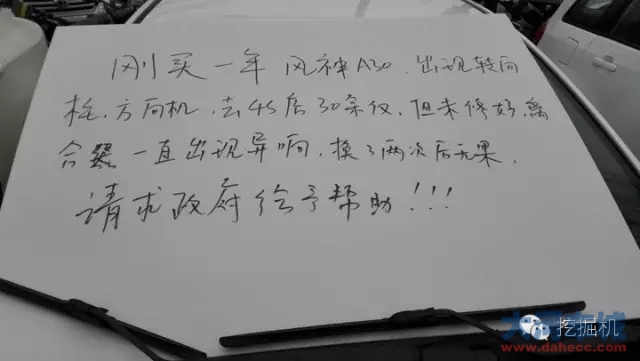 刚买一年风神A30,出现转向
柱、方向机,去4S店30余次,但未修好,离
合器一直出现异响,换了两次后无果,
请求政府给予帮助!!!
挖掘机
www.dahecc.com